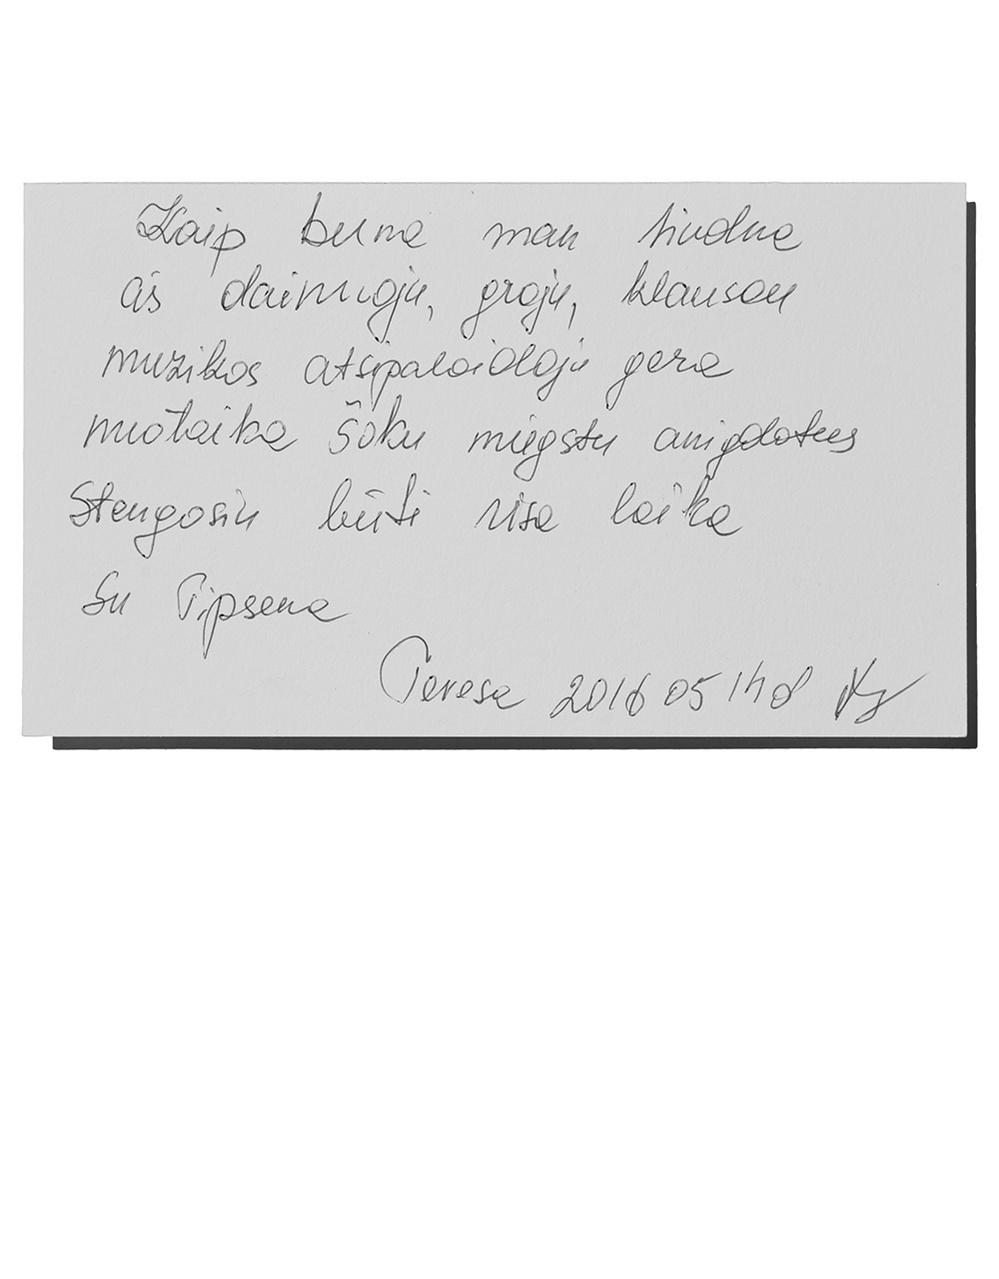 Kaip buna man liudna
aš dainuoju, groju, klausau
muzikos atsipalaidoju gera
nuotaika šoku miegstu anigdotus
Stengosiu būti visa laika
Su Šipsena
Teresa 2016 05 14 d